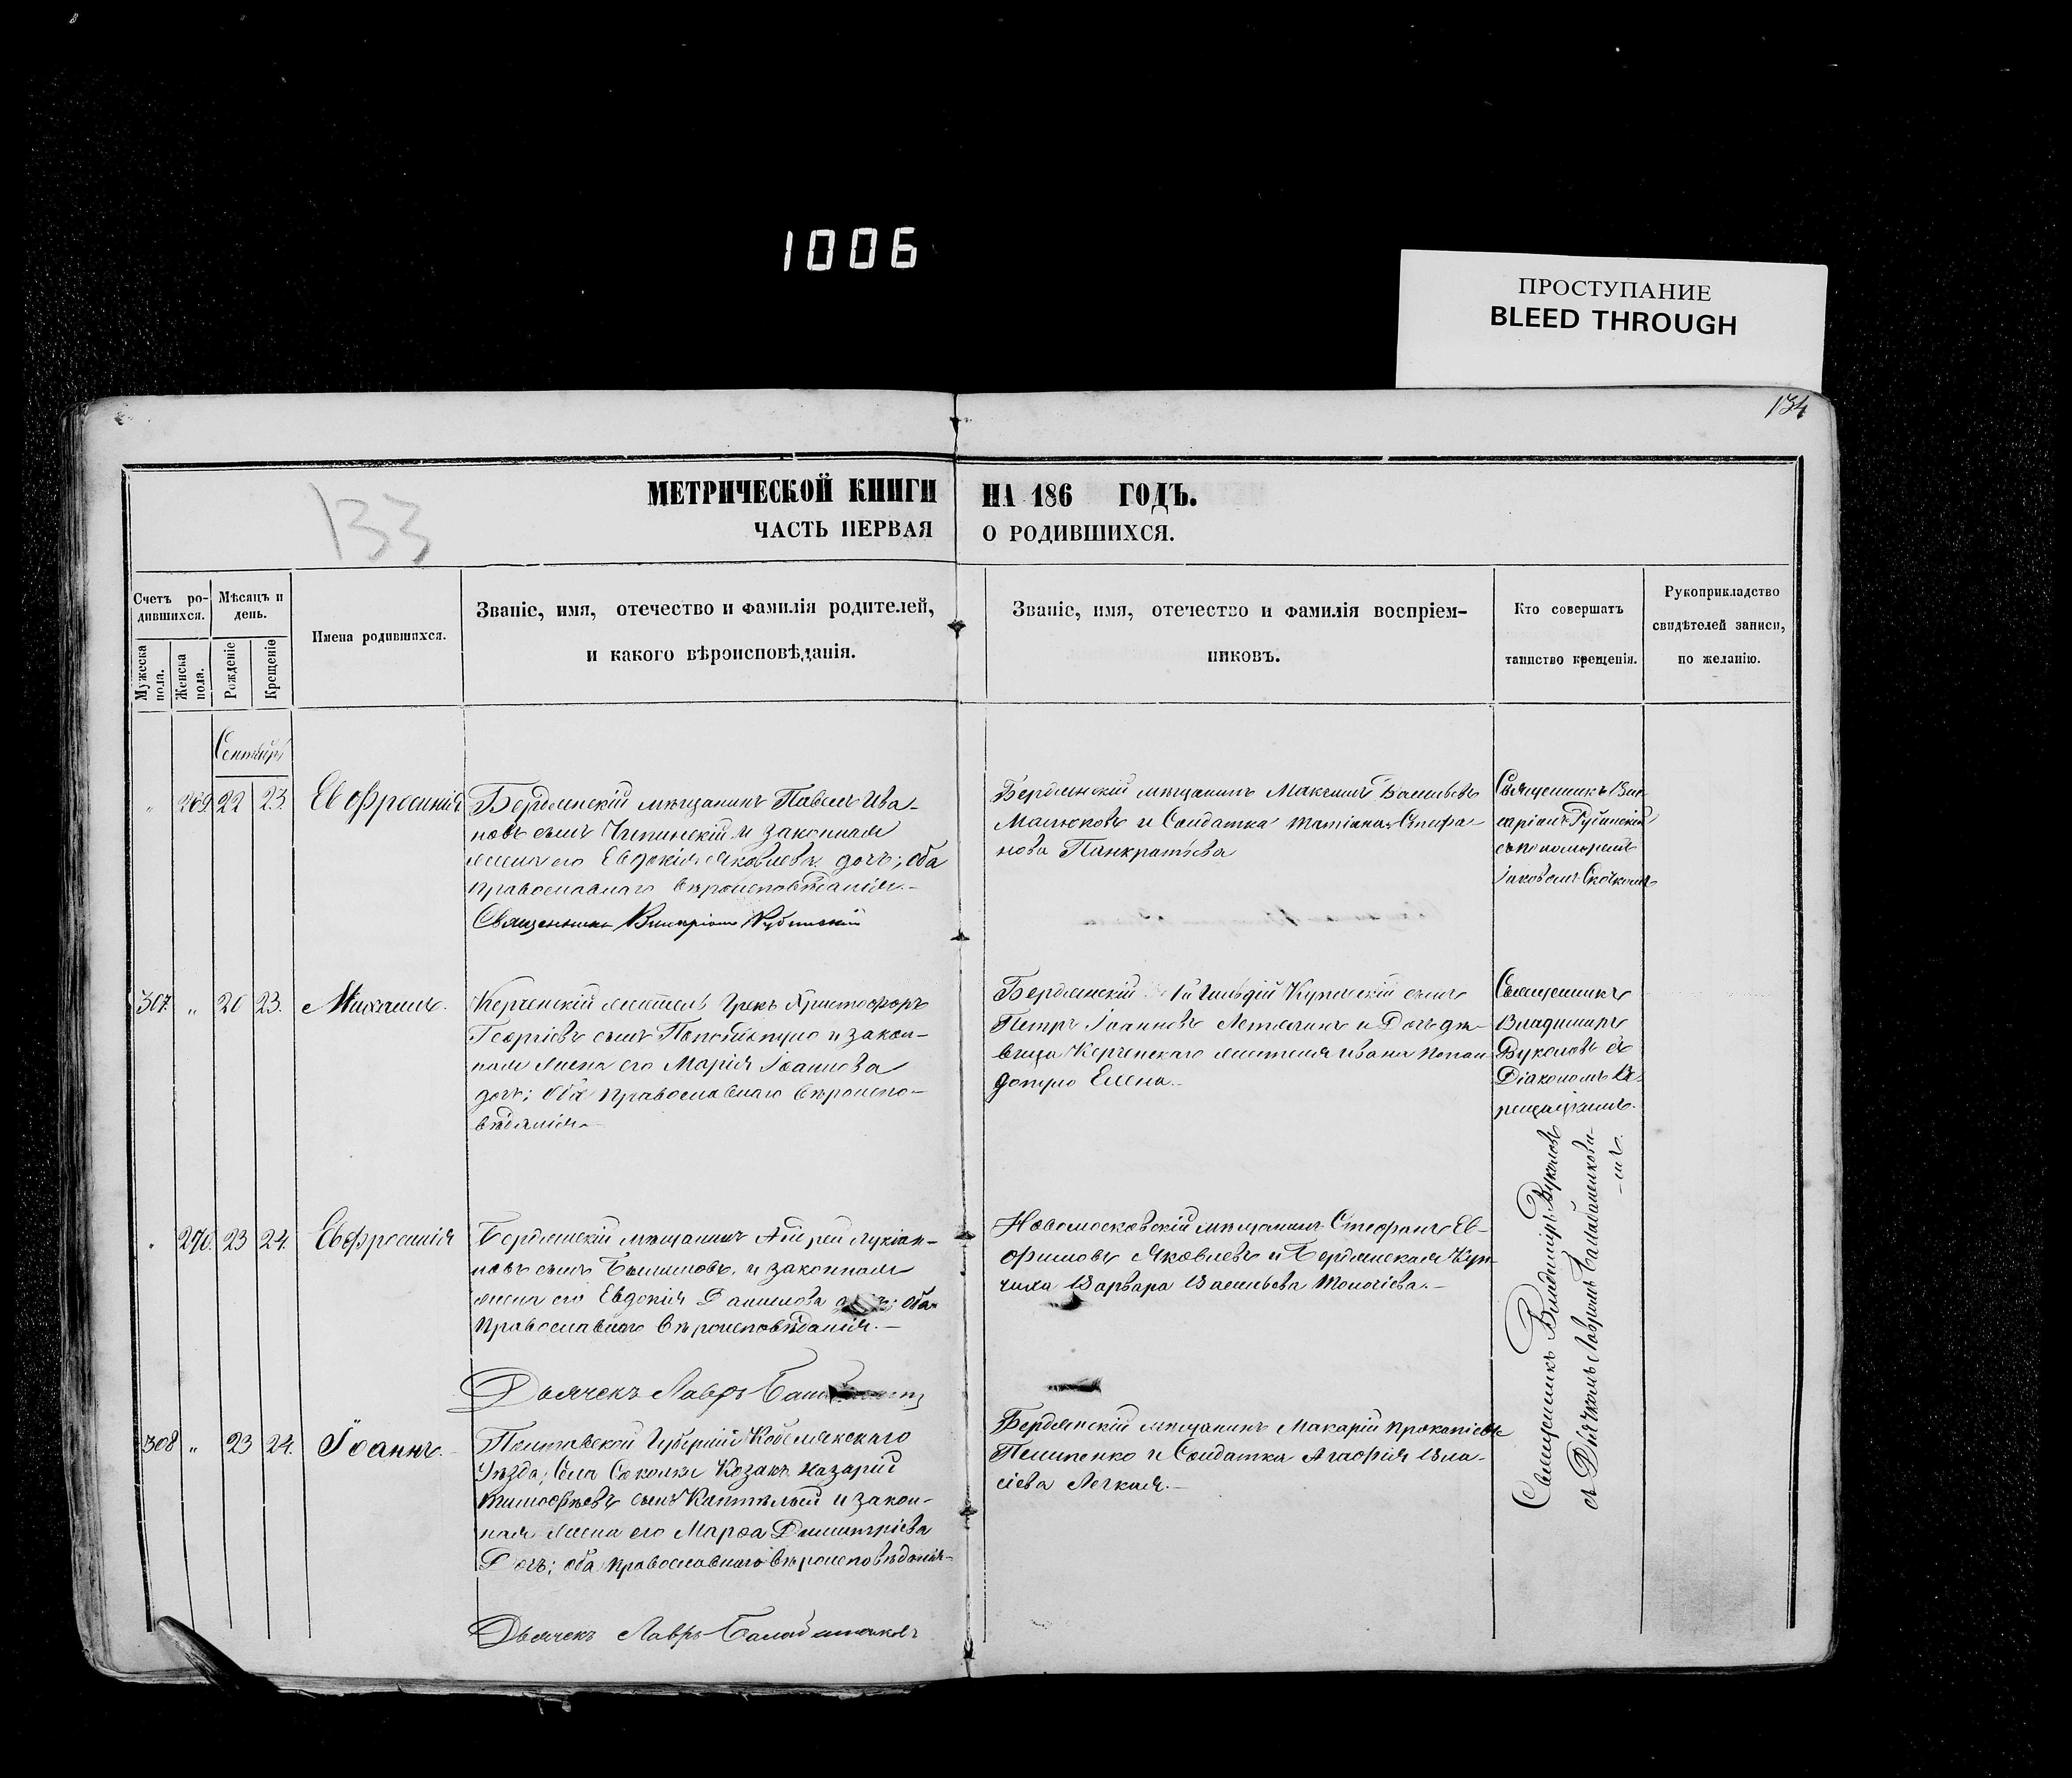 1006
ПРОСТУПАНИЕ
BLEED THROUGH
134
133
МЕТРИЧЕСКОЙ КНИГИ НА 186 ГОДЪ.
ЧАСТЬ ПЕРВАЯ О РОДИВШИХСЯ.
Счетъ ро-
дившихся.
Мужеска пола.
Женска пола.
Мѣсяцъ и
день.
Рожденіе
Крещеніе
Имена родившихся.
Званіе, имя, отечество и фамилія родителей,
и какого вѣроисповѣданія.
Званіе, имя, отечество и фамилія воспріем-
никовъ.
Кто совершатъ
таинство крещенія.
Рукоприкладство
свидѣтелей записи,
по желанію.
Сентябрь
" 269 22 23. Евфросинія
Бердянскій мѣщанинъ Павелъ Ива-
новъ сынъ и законная
жена его Евдокія Яковлева дочь; оба
православнаго вѣроисповѣданія.-
Священникъ
Бердянскій мѣщанинъ Максимъ Васильевъ
и Солдатка Татіана Стефа-
нова Панкратьева
Священникъ
съ пономаремъ
Іаковомъ
307. " 20 23. Михаилъ.
Керченскій житель Грекъ Христофоръ
Георгіевъ сынъ и закон-
ная жена его Марія Іоаннова
дочь; оба православнаго вѣроиспо-
вѣданія.-
Бердянскій Гильдіи Купеческій сынъ
Петръ Іоанновъ и Дочь дѣ-
вица Керченскаго жителя Ивана Попан-
допуло Елена.-
Священникъ
Владимиръ
Вуколовъ съ
Діакономъ
" 270. 23 24. Евфросинія
Бердянскій мѣщанинъ Андрей Лукіан-
новъ сынъ и законная
жена его Евдокія Данилова оба
Православнаго вѣроисповѣданія.-
Дьячекъ Лавръ
Новомосковскій мѣщанинъ Стефанъ Ев-
фимовъ Яковлевъ и Бердянская Куп-
чиха Варвара Васильева
Священникъ Владимиръ Вуколовъ
съ Дьячкомъ Лавромъ
308 " 23 24. Іоаннъ.
Полтавской Губерніи Кобелякскаго
Уѣзда, Села Соколки Козакъ Назарій
Тимофѣевъ сынъ и закон-
ная жена его Марфа Димитріева
Дочь; оба православнаго вѣроисповѣданія-
Дьячекъ Лавръ
Бердянскій мѣщанинъ Макарій Прокопіевъ
и Солдатка Агафія Вла-
сіева Легкая.-